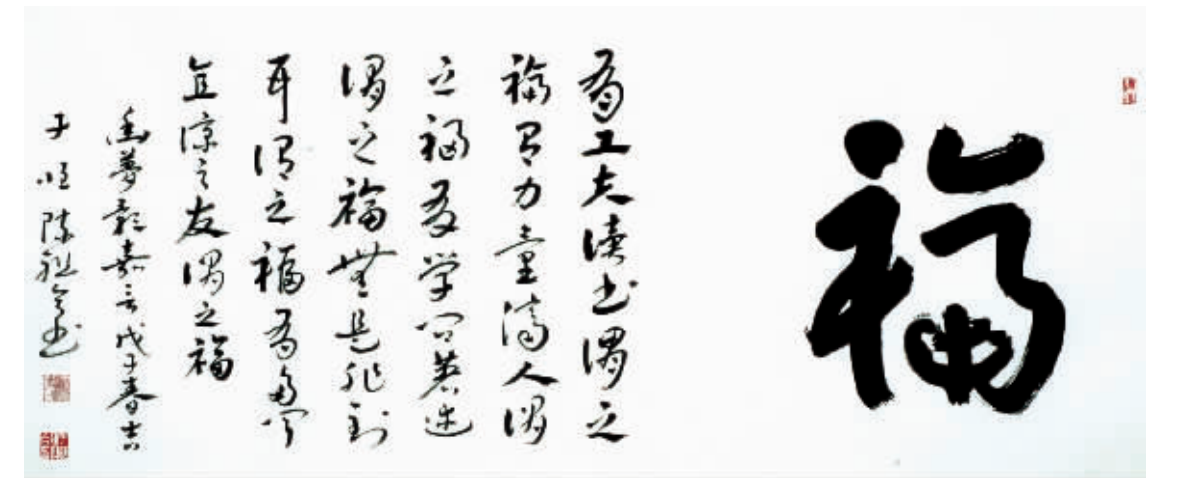 福
有工夫读书谓之
福有力量济人谓
之福有学问著述
谓之福無是非到
耳谓之福有多闻
直谅之友谓之福
幽梦影嘉言戊子春吉
于 陈祖 书